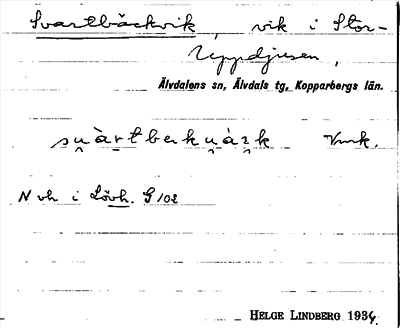 Svartbäckvik, vik i Stor-
Uppdjusen,
Älvdalens sn, Älvdals tg, Kopparbergs län.
su̯àrtberku̯àʒ̩k Vmk.
N vh i Lövh. G 102
HELGE LINDBERG 1934.